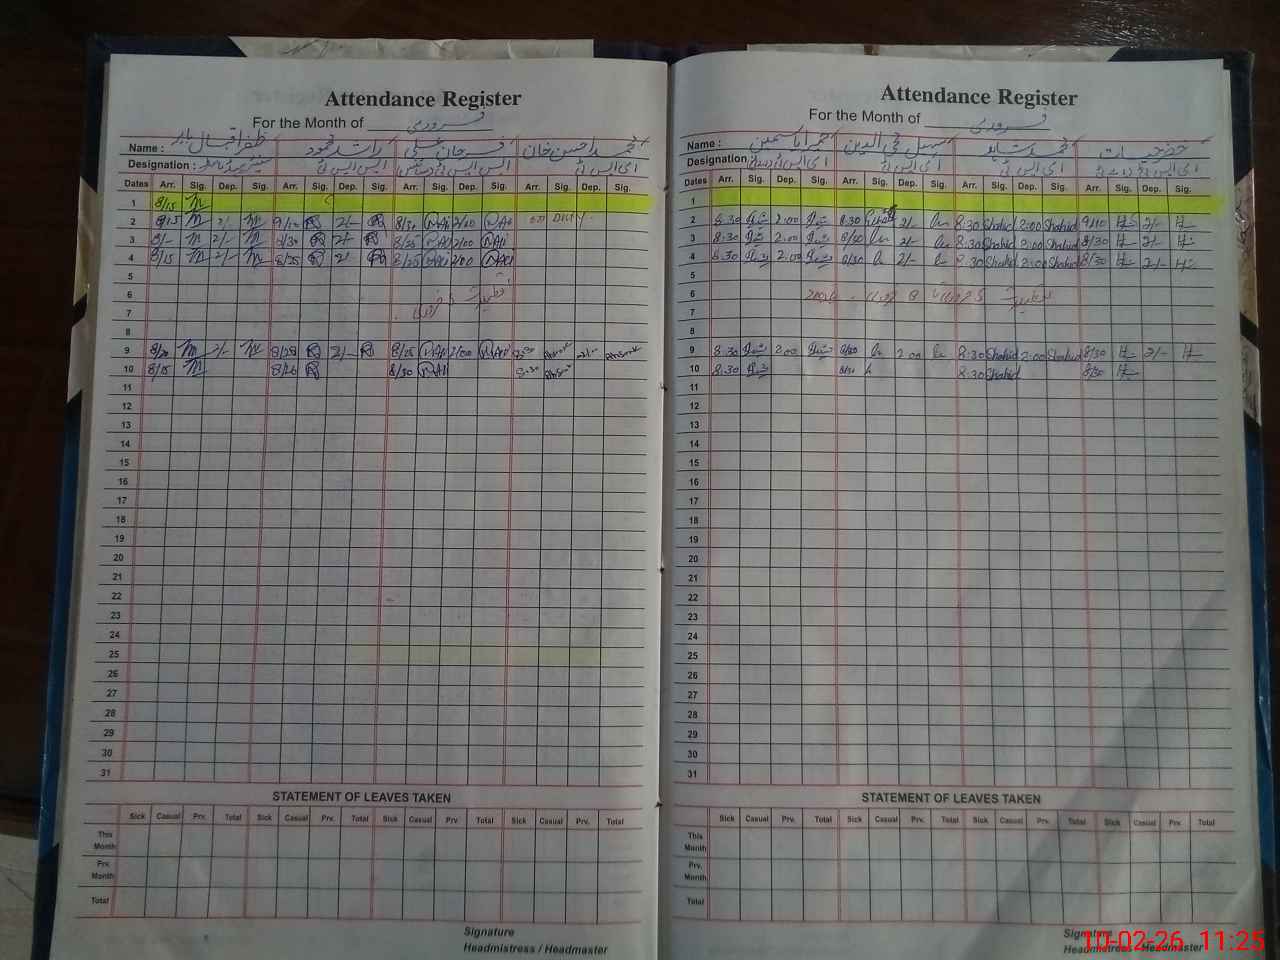 Attendance Register
For the Month of فروری
Name : ظفر اقبال بابر راشد محمود فرحان علی محمد احسن خان
Designation : ایس ایس ٹی ای ایس ٹی
Dates Arr. Sig. Dep. Sig. Arr. Sig. Dep. Sig. Arr. Sig. Dep. Sig. Arr. Sig. Dep. Sig.
1 8/15
2 8/15 2/- 9/10 R 2/- R 8/30 2/00 ON DUTY
3 8/- 2/- 8/30 R 2/- R 8/25 2/00
4 8/15 2/- 8/25 R 2/- R 8/25 2/00
5
6 تعطیلات
7
8
9 8/20 2/- 8/28 R 2/- R 8/25 2/00
10 8/15 8/26 R 8/30 8:30
11
12
13
14
15
16
17
18
19
20
21
22
23
24
25
26
27
28
29
30
31
STATEMENT OF LEAVES TAKEN
Sick Casual Prv. Total Sick Casual Prv. Total Sick Casual Prv. Total Sick Casual Prv. Total
This Month
Prv. Month
Total
Signature
Headmistress / Headmaster
Attendance Register
For the Month of فروری
Name : حمرا یاسمین سہیل محی الدین محمد شاہد خضر حیات
Designation ای ایس ٹی ای ایس ٹی ای ایس ٹی ای ایس ٹی
Dates Arr. Sig. Dep. Sig. Arr. Sig. Dep. Sig. Arr. Sig. Dep. Sig. Arr. Sig. Dep. Sig.
1
2 8:30 2:00 8:30 2/- 8:30 Shahid 2:00 Shahid 9/10 2/-
3 8:30 2:00 8/30 2/- 8:30 Shahid 2:00 Shahid 8/30 2/-
4 8:30 2:00 8/30 2/- 8:30 Shahid 2:00 Shahid 8/30 2/-
5
6 تعطیلات 5 فروری تا 8 فروری 2026
7
8
9 8:30 2:00 8/30 2:00 8:30 Shahid 2:00 Shahid 8/30 2/-
10 8:30 8/30 8:30 Shahid 8/30
11
12
13
14
15
16
17
18
19
20
21
22
23
24
25
26
27
28
29
30
31
STATEMENT OF LEAVES TAKEN
Sick Casual Prv. Total Sick Casual Prv. Total Sick Casual Prv. Total Sick Casual Prv. Total
This Month
Prv. Month
Total
Signature
Headmistress / Headmaster
10-02-26 11:25